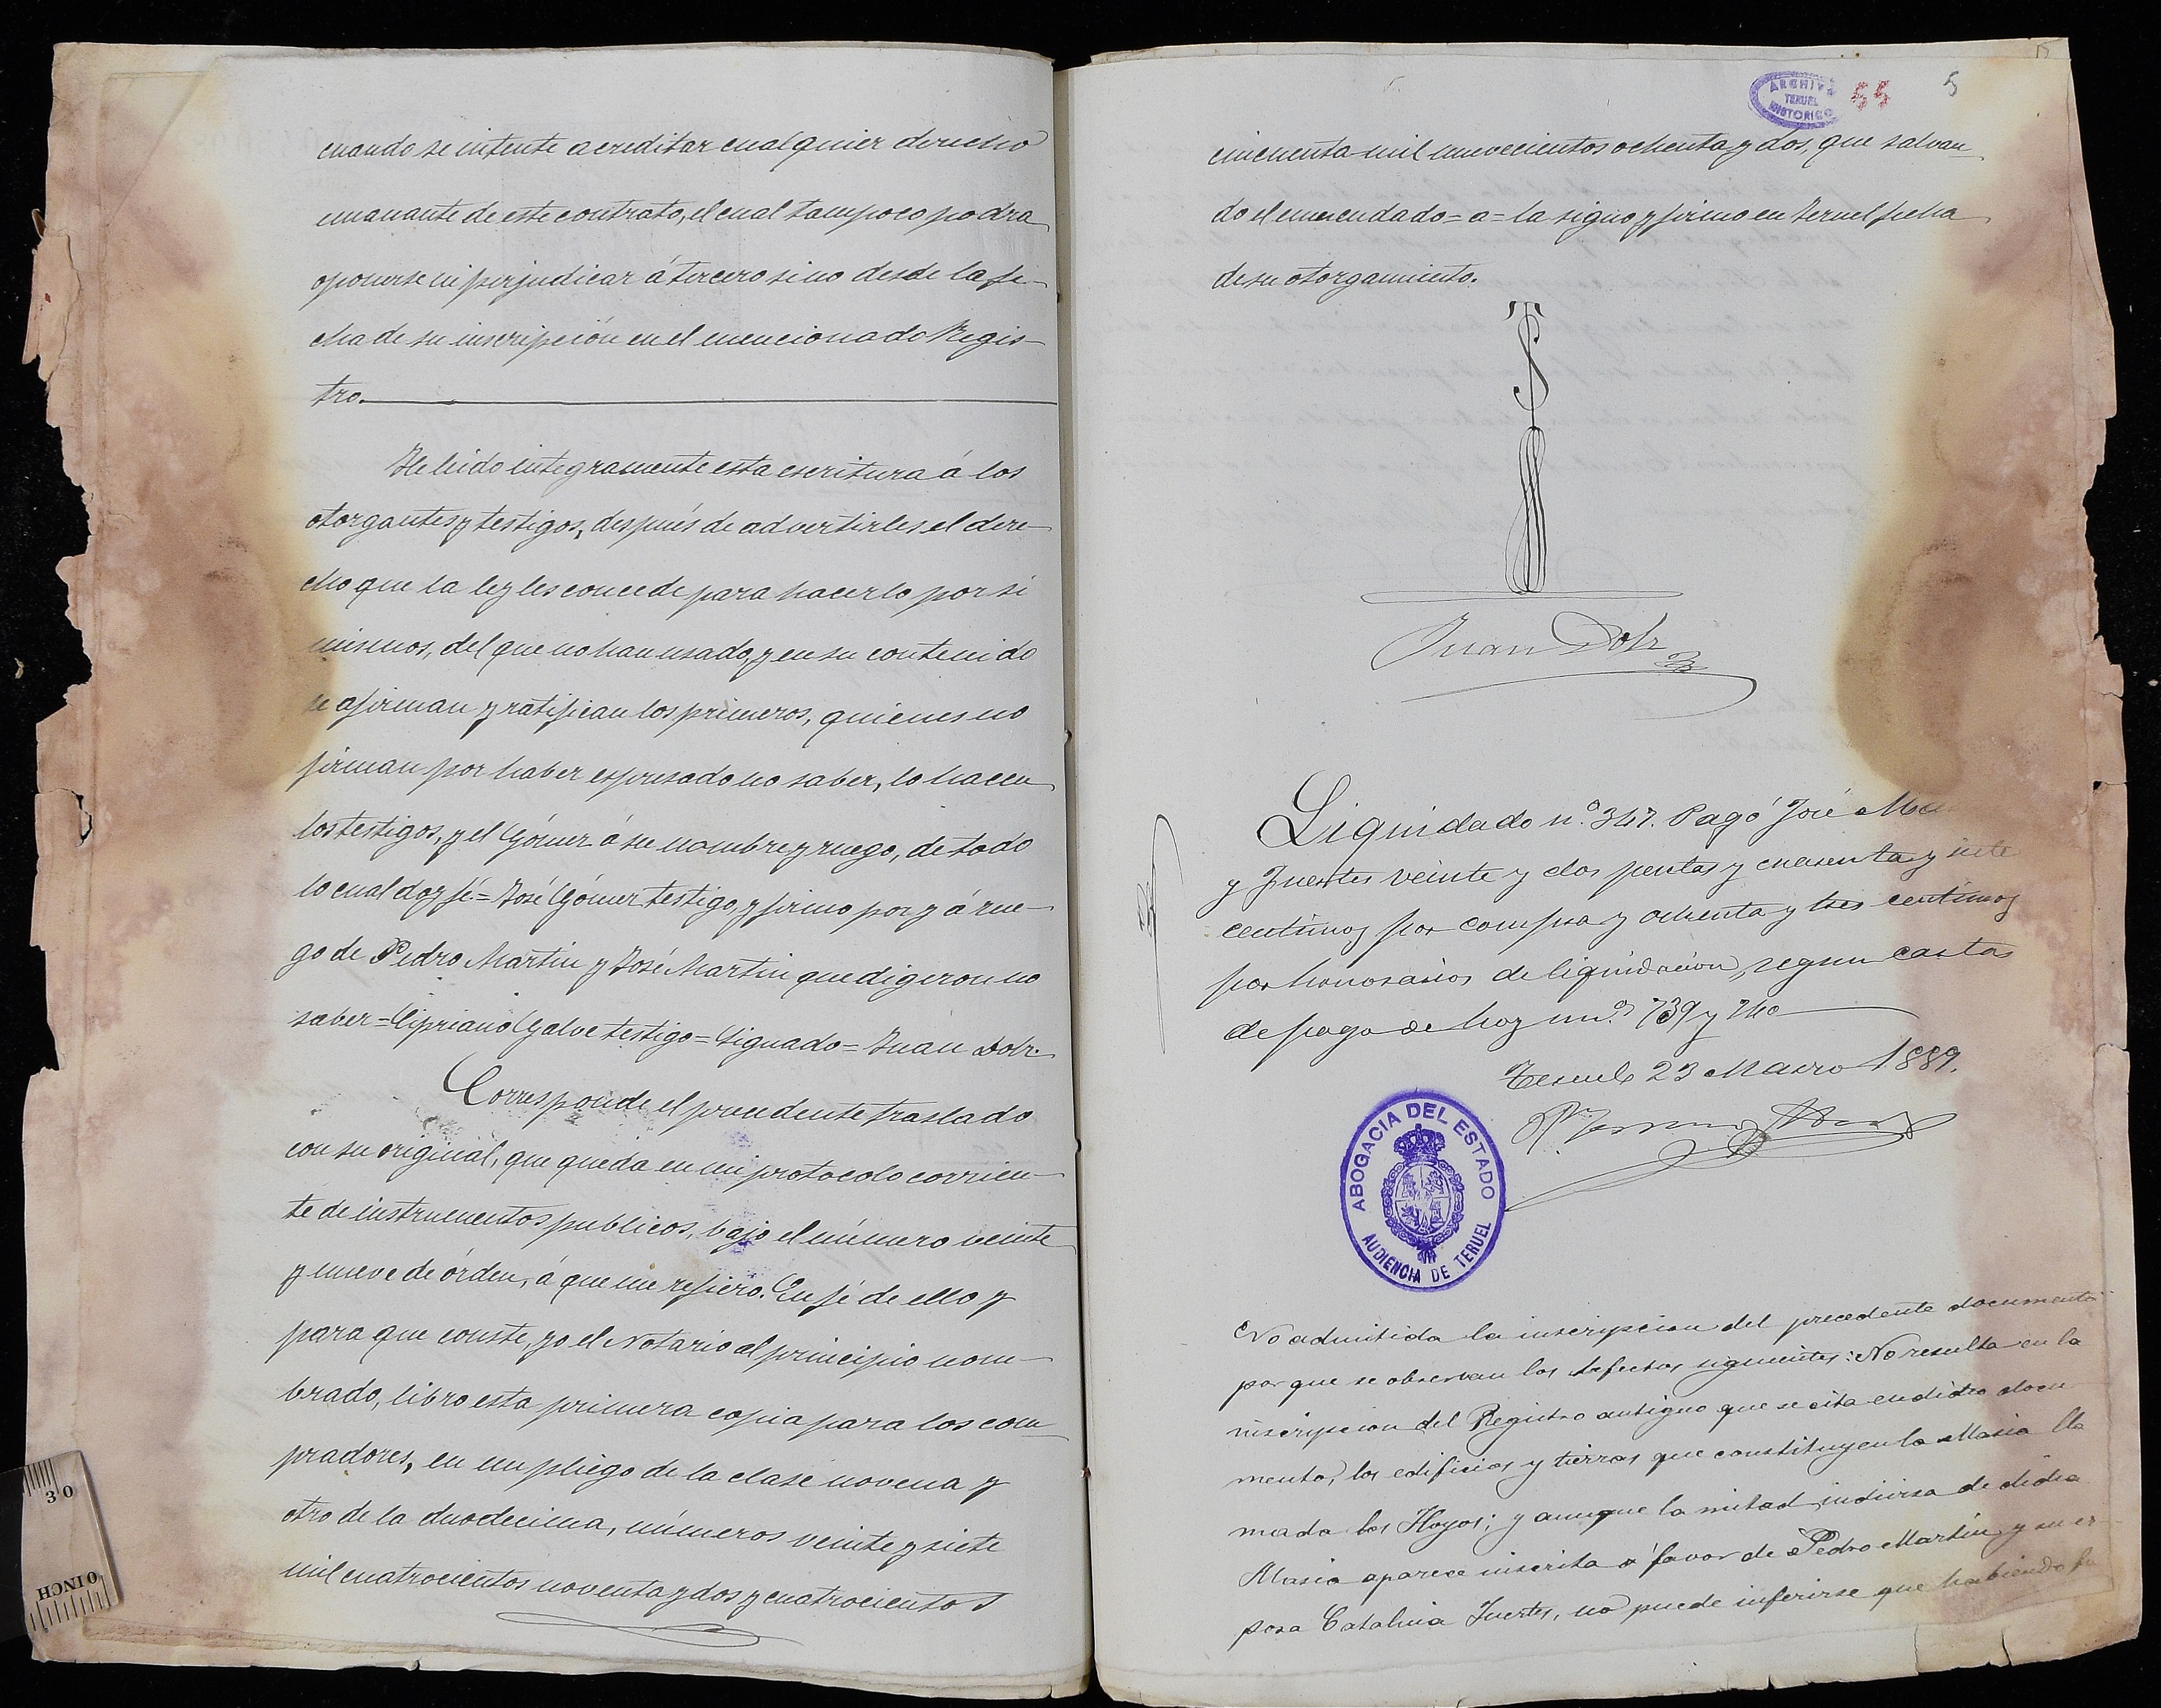 cuando se intente acreditar cualquier derecho
emanante de este contrato, el cual tampoco podra
oponerse ni perjudicar á tercero sino desde la fe-
cha de su inscripción en el mencionado Regis-
tro.
He leido integramente esta escritura á los
otorgantes y testigos, después de advertirles el dere-
cho que la ley les concede para hacerlo por si
mismos, del que no han usado, y en su contenido
se afirman y ratifican los primeros, quienes no
firman por haber espresado no saber, lo hacen
los testigos, y el Gómez á su nombre y ruego, de todo
lo cual doy fé.= José Gómez testigo, y firmo por y á rue-
go de Pedro Martin y José Martin que digeron no
saber = Cipriano Galve testigo = Signado = Juan Dolz.
Corresponde el precedente traslado
con su original, que queda en mi protocolo corrien-
te de instrumentos publicos, bajo el número veinte
y nueve de órden, á que me refiero. En fé de ello y
para que conste, yo el Notario al principio nom-
brado, libro esta primera copia para los com-
pradores, en un pliego de la clase novena y
otro de la duodecima, números veinte y siete
mil cuatrocientos noventa y dos y cuatrocientos
ARCHIVO
TERUEL
HISTORICO
55
5
cincuenta mil novecientos ochenta y dos, que salvan-
do el enmendado = a = la signo y firmo en Teruel fecha
de su otorgamiento.
Juan Dolz
Liquidado n.º 347. Pagó José
y Fuertes veinte y dos pesetas y cuarenta y siete
centimos por compra y ochenta y tres centimos
por honorarios de liquidacion, segun cartas
de pago de hoy nn.º 739 y 740
Teruel 23 Marzo 1889.
ABOGACIA DEL ESTADO
AUDIENCIA DE TERUEL
No admitida la inscripcion del precedente documento
por que se observan los defectos siguientes: No resulta en la
inscripcion del Registro antiguo que se cita en dicho docu
mento, los edificios y tierras que constituyen la Masia lla
mada los Hoyos; y aunque la mitad indivisa de dicha
Masia aparece inscrita á favor de Pedro Martin y su es-
posa Catalina Fuertes, no puede inferirse que habiendo